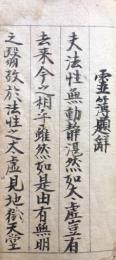 靈簿題辭
夫法性無動靜湛然如大虛豈有
去來今之相乎雖然如是由有無明
之翳故於法性之大虛見地獄天堂